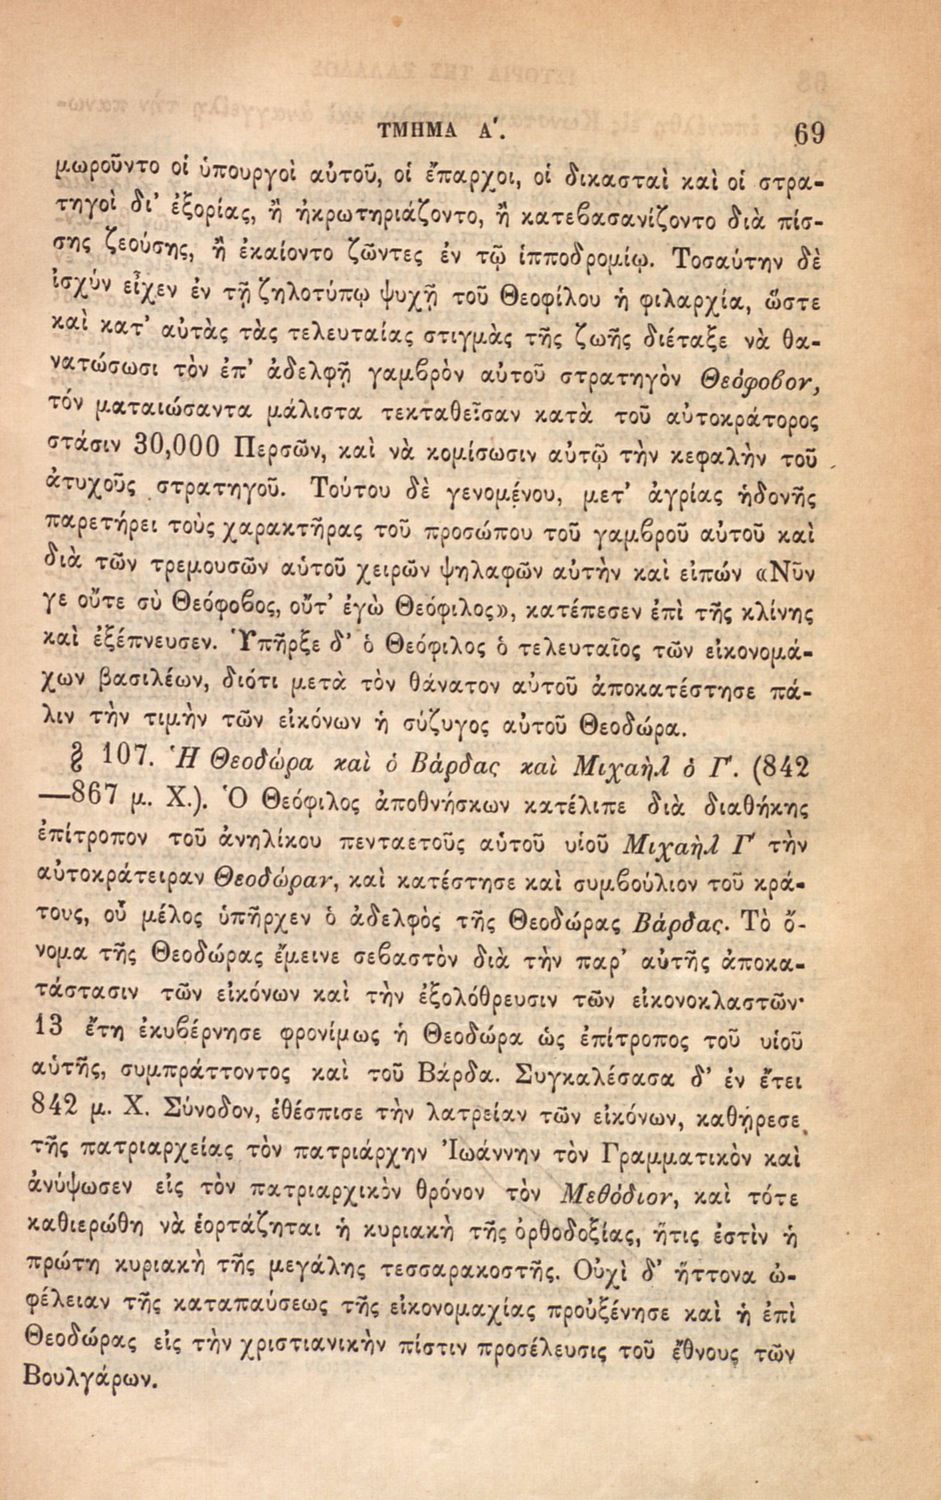 ΤΜΗΜΑ Α΄.
69
μωροῦντο οἱ ὑπουργοὶ αὐτοῦ, οἱ ἔπαρχοι, οἱ δικασταὶ καὶ οἱ στρα-
τηγοὶ δι' ἐξορίας, ἢ ἠκρωτηριάζοντο, ἢ κατεβασανίζοντο διὰ πίσ-
σης ζεούσης, ἢ ἐκαίοντο ζῶντες ἐν τῷ ἱπποδρομίῳ. Τοσαύτην δὲ
ἰσχύν εἶχεν ἐν τῇ ζηλοτύπῳ ψυχῇ τοῦ Θεοφίλου ἡ φιλαρχία, ὥστε
καὶ κατ' αὐτὰς τὰς τελευταίας στιγμὰς τῆς ζωῆς διέταξε νὰ θα-
νατώσωσι τὸν ἐπ' ἀδελφῇ γαμβρὸν αὐτοῦ στρατηγὸν Θεόφοβον,
τόν ματαιώσαντα μάλιστα τεκταθεῖσαν κατὰ τοῦ αὐτοκράτορος
στάσιν 30,000 Περσῶν, καὶ νὰ κομίσωσιν αὐτῷ τὴν κεφαλὴν τοῦ
ἀτυχοῦς στρατηγοῦ. Τούτου δὲ γενομένου, μετ' ἀγρίας ἡδονῆς
παρετήρει τοὺς χαρακτῆρας τοῦ προσώπου τοῦ γαμβροῦ αὐτοῦ καὶ
διὰ τῶν τρεμουσῶν αὑτοῦ χειρῶν ψηλαφῶν αὐτὴν καὶ εἰπών «Νῦν
γε οὔτε σὺ Θεόφοβος, οὔτ' ἐγὼ Θεόφιλος», κατέπεσεν ἐπὶ τῆς κλίνης
καὶ ἐξέπνευσεν. Ὑπῆρξε δ' ὁ Θεόφιλος ὁ τελευταῖος τῶν εἰκονομά-
χων βασιλέων, διότι μετὰ τὸν θάνατον αὐτοῦ ἀποκατέστησε πά-
λιν τὴν τιμὴν τῶν εἰκόνων ἡ σύζυγος αὐτοῦ Θεοδώρα.
§ 107. Ἡ Θεοδώρα καὶ ὁ Βάρδας καὶ Μιχαὴλ ὁ Γ'. (842
—867 μ. Χ.). Ὁ Θεόφιλος ἀποθνήσκων κατέλιπε διὰ διαθήκης
ἐπίτροπον τοῦ ἀνηλίκου πενταετοῦς αὑτοῦ υἱοῦ Μιχαὴλ Γ' τὴν
αὐτοκράτειραν Θεοδώραν, καὶ κατέστησε καὶ συμβούλιον τοῦ κρά-
τους, οὗ μέλος ὑπῆρχεν ὁ ἀδελφὸς τῆς Θεοδώρας Βάρδας. Τὸ ὄ-
νομα τῆς Θεοδώρας ἔμεινε σεβαστὸν διὰ τὴν παρ' αὐτῆς ἀποκα-
τάστασιν τῶν εἰκόνων καὶ τὴν ἐξολόθρευσιν τῶν εἰκονοκλαστῶν·
13 ἔτη ἐκυβέρνησε φρονίμως ἡ Θεοδώρα ὡς ἐπίτροπος τοῦ υἱοῦ
αὑτῆς, συμπράττοντος καὶ τοῦ Βάρδα. Συγκαλέσασα δ' ἐν ἔτει
842 μ. Χ. Σύνοδον, ἐθέσπισε τὴν λατρείαν τῶν εἰκόνων, καθήρεσε
τῆς πατριαρχείας τὸν πατριάρχην Ἰωάννην τὸν Γραμματικὸν καὶ
ἀνύψωσεν εἰς τὸν πατριαρχικὸν θρόνον τὸν Μεθόδιον, καὶ τότε
καθιερώθη νὰ ἑορτάζηται ἡ κυριακὴ τῆς ὀρθοδοξίας, ἥτις ἐστὶν ἡ
πρώτη κυριακὴ τῆς μεγάλης τεσσαρακοστῆς. Οὐχὶ δ' ἥττονα ὠ-
φέλειαν τῆς καταπαύσεως τῆς εἰκονομαχίας προὐξένησε καὶ ἡ ἐπὶ
Θεοδώρας εἰς τὴν χριστιανικὴν πίστιν προσέλευσις τοῦ ἔθνους τῶν
Βουλγάρων.